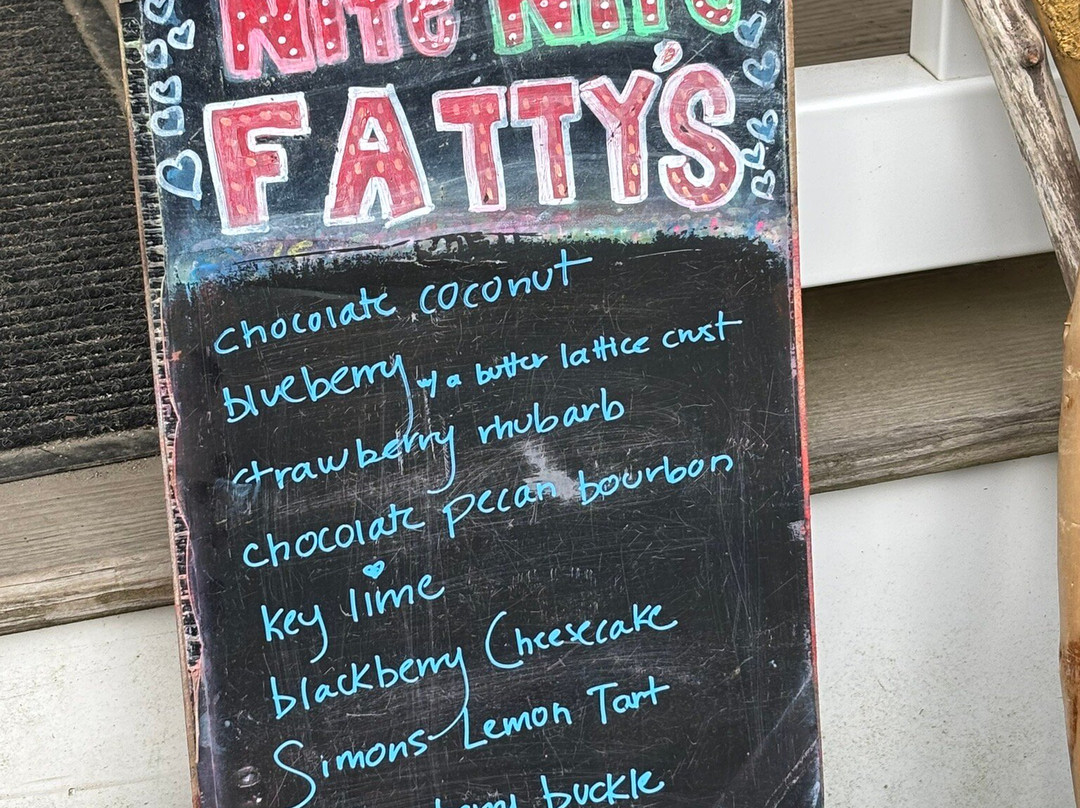 NITE NITE
FATTY'S
chocolate coconut
blueberry w/ a butter lattice crust
strawberry rhubarb
chocolate pecan bourbon
key lime
blackberry Cheesecake
Simons Lemon Tart
buckle